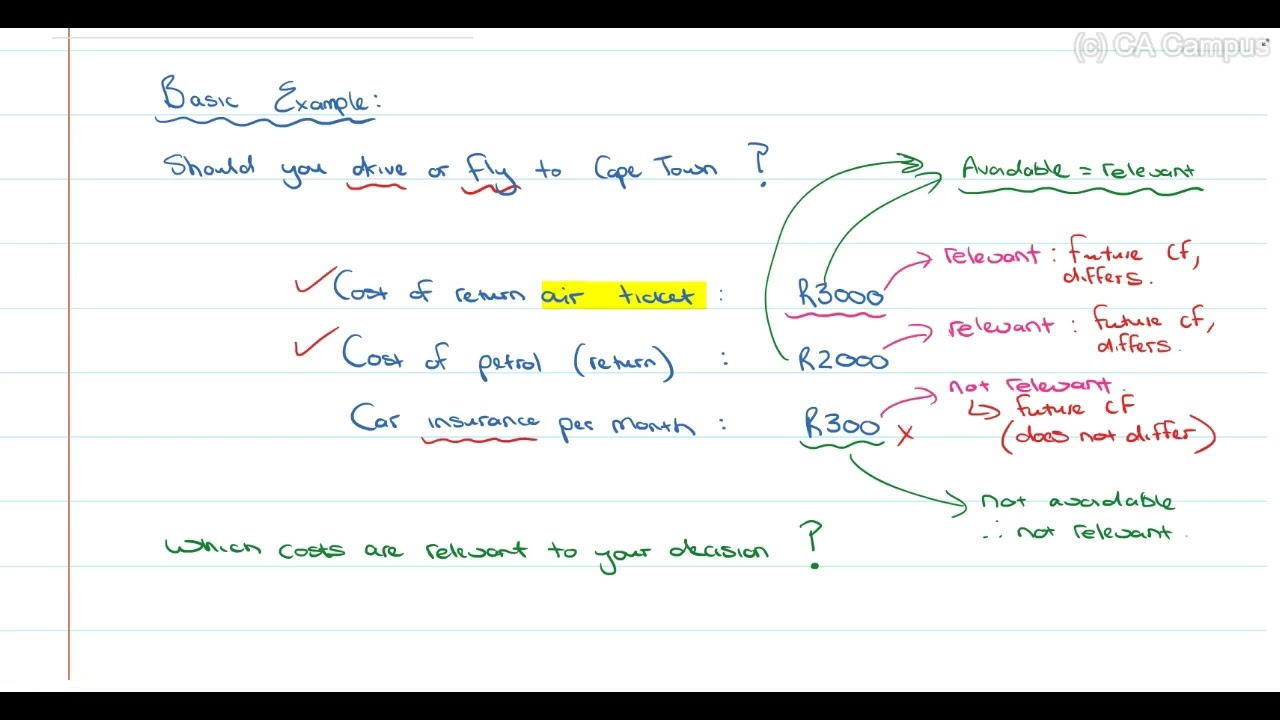 (c) CA Campus
Basic Example:
Should you drive or fly to Cape Town ?
Avoidable = relevant
Cost of return air ticket : R3000
relevant : future cf,
differs.
Cost of petrol (return) : R2000
relevant : future cf,
differs.
Car insurance per month : R300 x
not relevant.
↳ future CF
(does not differ)
not avoidable
∴ not relevant.
Which costs are relevant to your decision ?